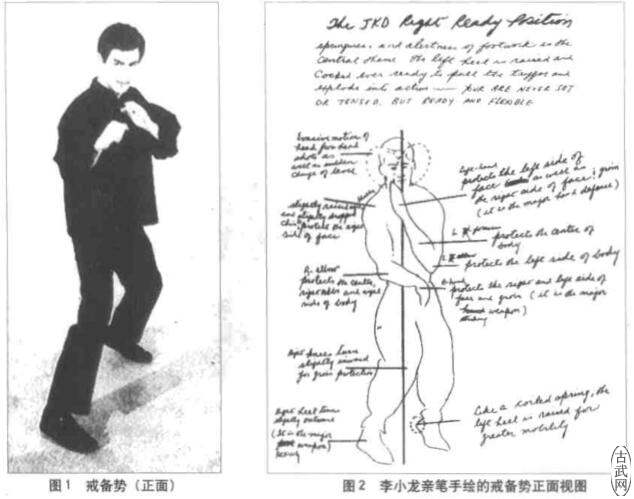 The JKD Right Ready Position
springiness, and alertness of footwork is the
Central theme. The left heel is raised and
Cocked ever ready to pull the trigger and
explode into action — YOU ARE NEVER SET
OR TENSED, BUT READY AND FLEXIBLE
Evasive motion of
head from head
shots as
well as sudden
change of level
Left hand
protects the left side of
face as well as
the right side of face; groin
(it is the major hand defense)
shoulder
slightly raised
and slightly dropped
chin protect the right
side of face
L. forearm
protects the center of
body
L. elbow
protects the left side of body
R. elbow
protects the center,
right ribs and right
side of body
R. hand
protects the right and left side of
face and groin (it is the major
weapon)
Right knee turn
slightly inward
for groin protection
Right heel turn
slightly outward
(It is the major
weapon)
Like a cocked spring, the
left heel is raised for
greater mobility
图1 戒备势（正面）
图2 李小龙亲笔手绘的戒备势正面视图
古武网